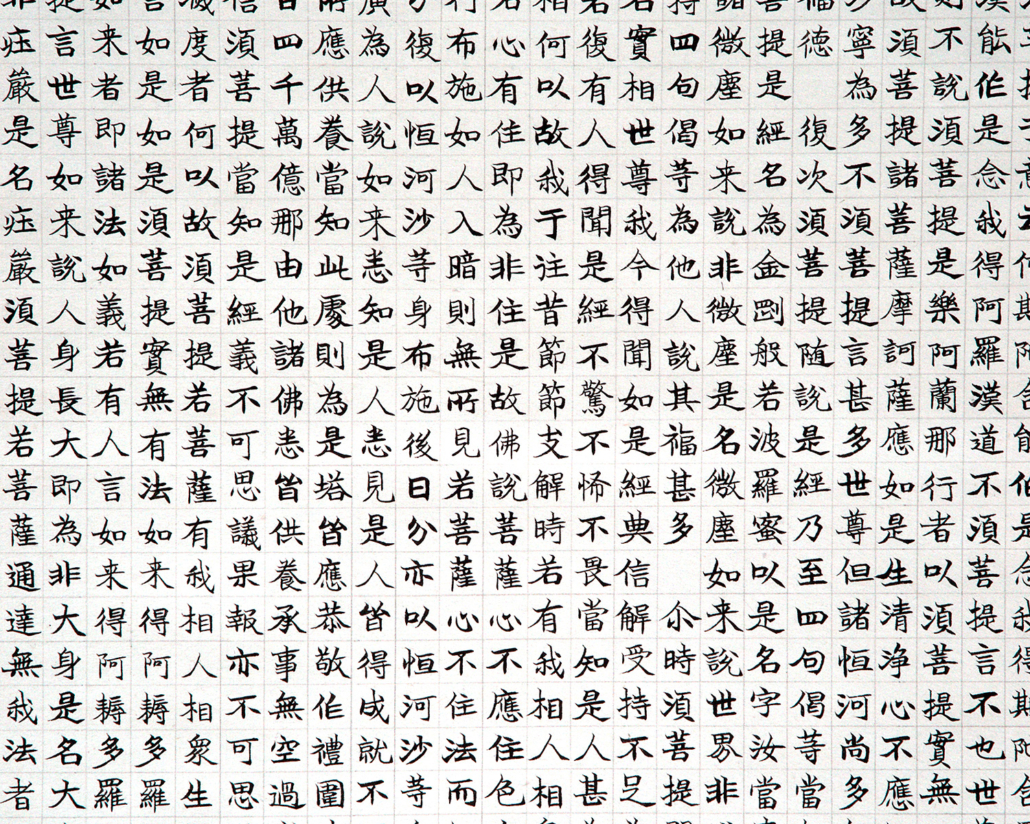 漢能作是念我得阿羅漢道不須菩提言不也世
則不說須菩提是樂阿蘭那行者以須菩提實無
故須菩提諸菩薩摩訶薩應如是生清淨心不應
沙寧為多不須菩提言甚多世尊但諸恒河尚多
福德 復次須菩提隨說是經乃至四句偈等當
菩提是經名為金剛般若波羅蜜以是名字汝當
諸微塵如来說非微塵是名微塵如来說世界非
持四句偈等為他人說其福甚多 尒時須菩提
名實相世尊我今得聞如是經典信解受持不足
若復有人得聞是經不驚不怖不畏當知是人甚
相何以故我于往昔節節支解時若有我相人相
若心有住即為非住是故佛說菩薩心不應住色
行布施如人入暗則無所見若菩薩心不住法而
分復以恒河沙等身布施後日分亦以恒河沙等
廣為人說如来悉知是人悉見是人皆得成就不
所應供養當知此處則為是塔皆應恭敬作禮圍
百四千萬億那由他諸佛悉皆供養承事無空過
信須菩提當知是經義不可思議果報亦不可思
滅度者何以故須菩提若菩薩有我相人相衆生
言如是如是須菩提實無有法如来得阿耨多羅
如来者即諸法如義若有人言如来得阿耨多羅
提言世尊如来說人身長大即為非大身是名大
非庄嚴是名庄嚴須菩提若菩薩通達無我法者